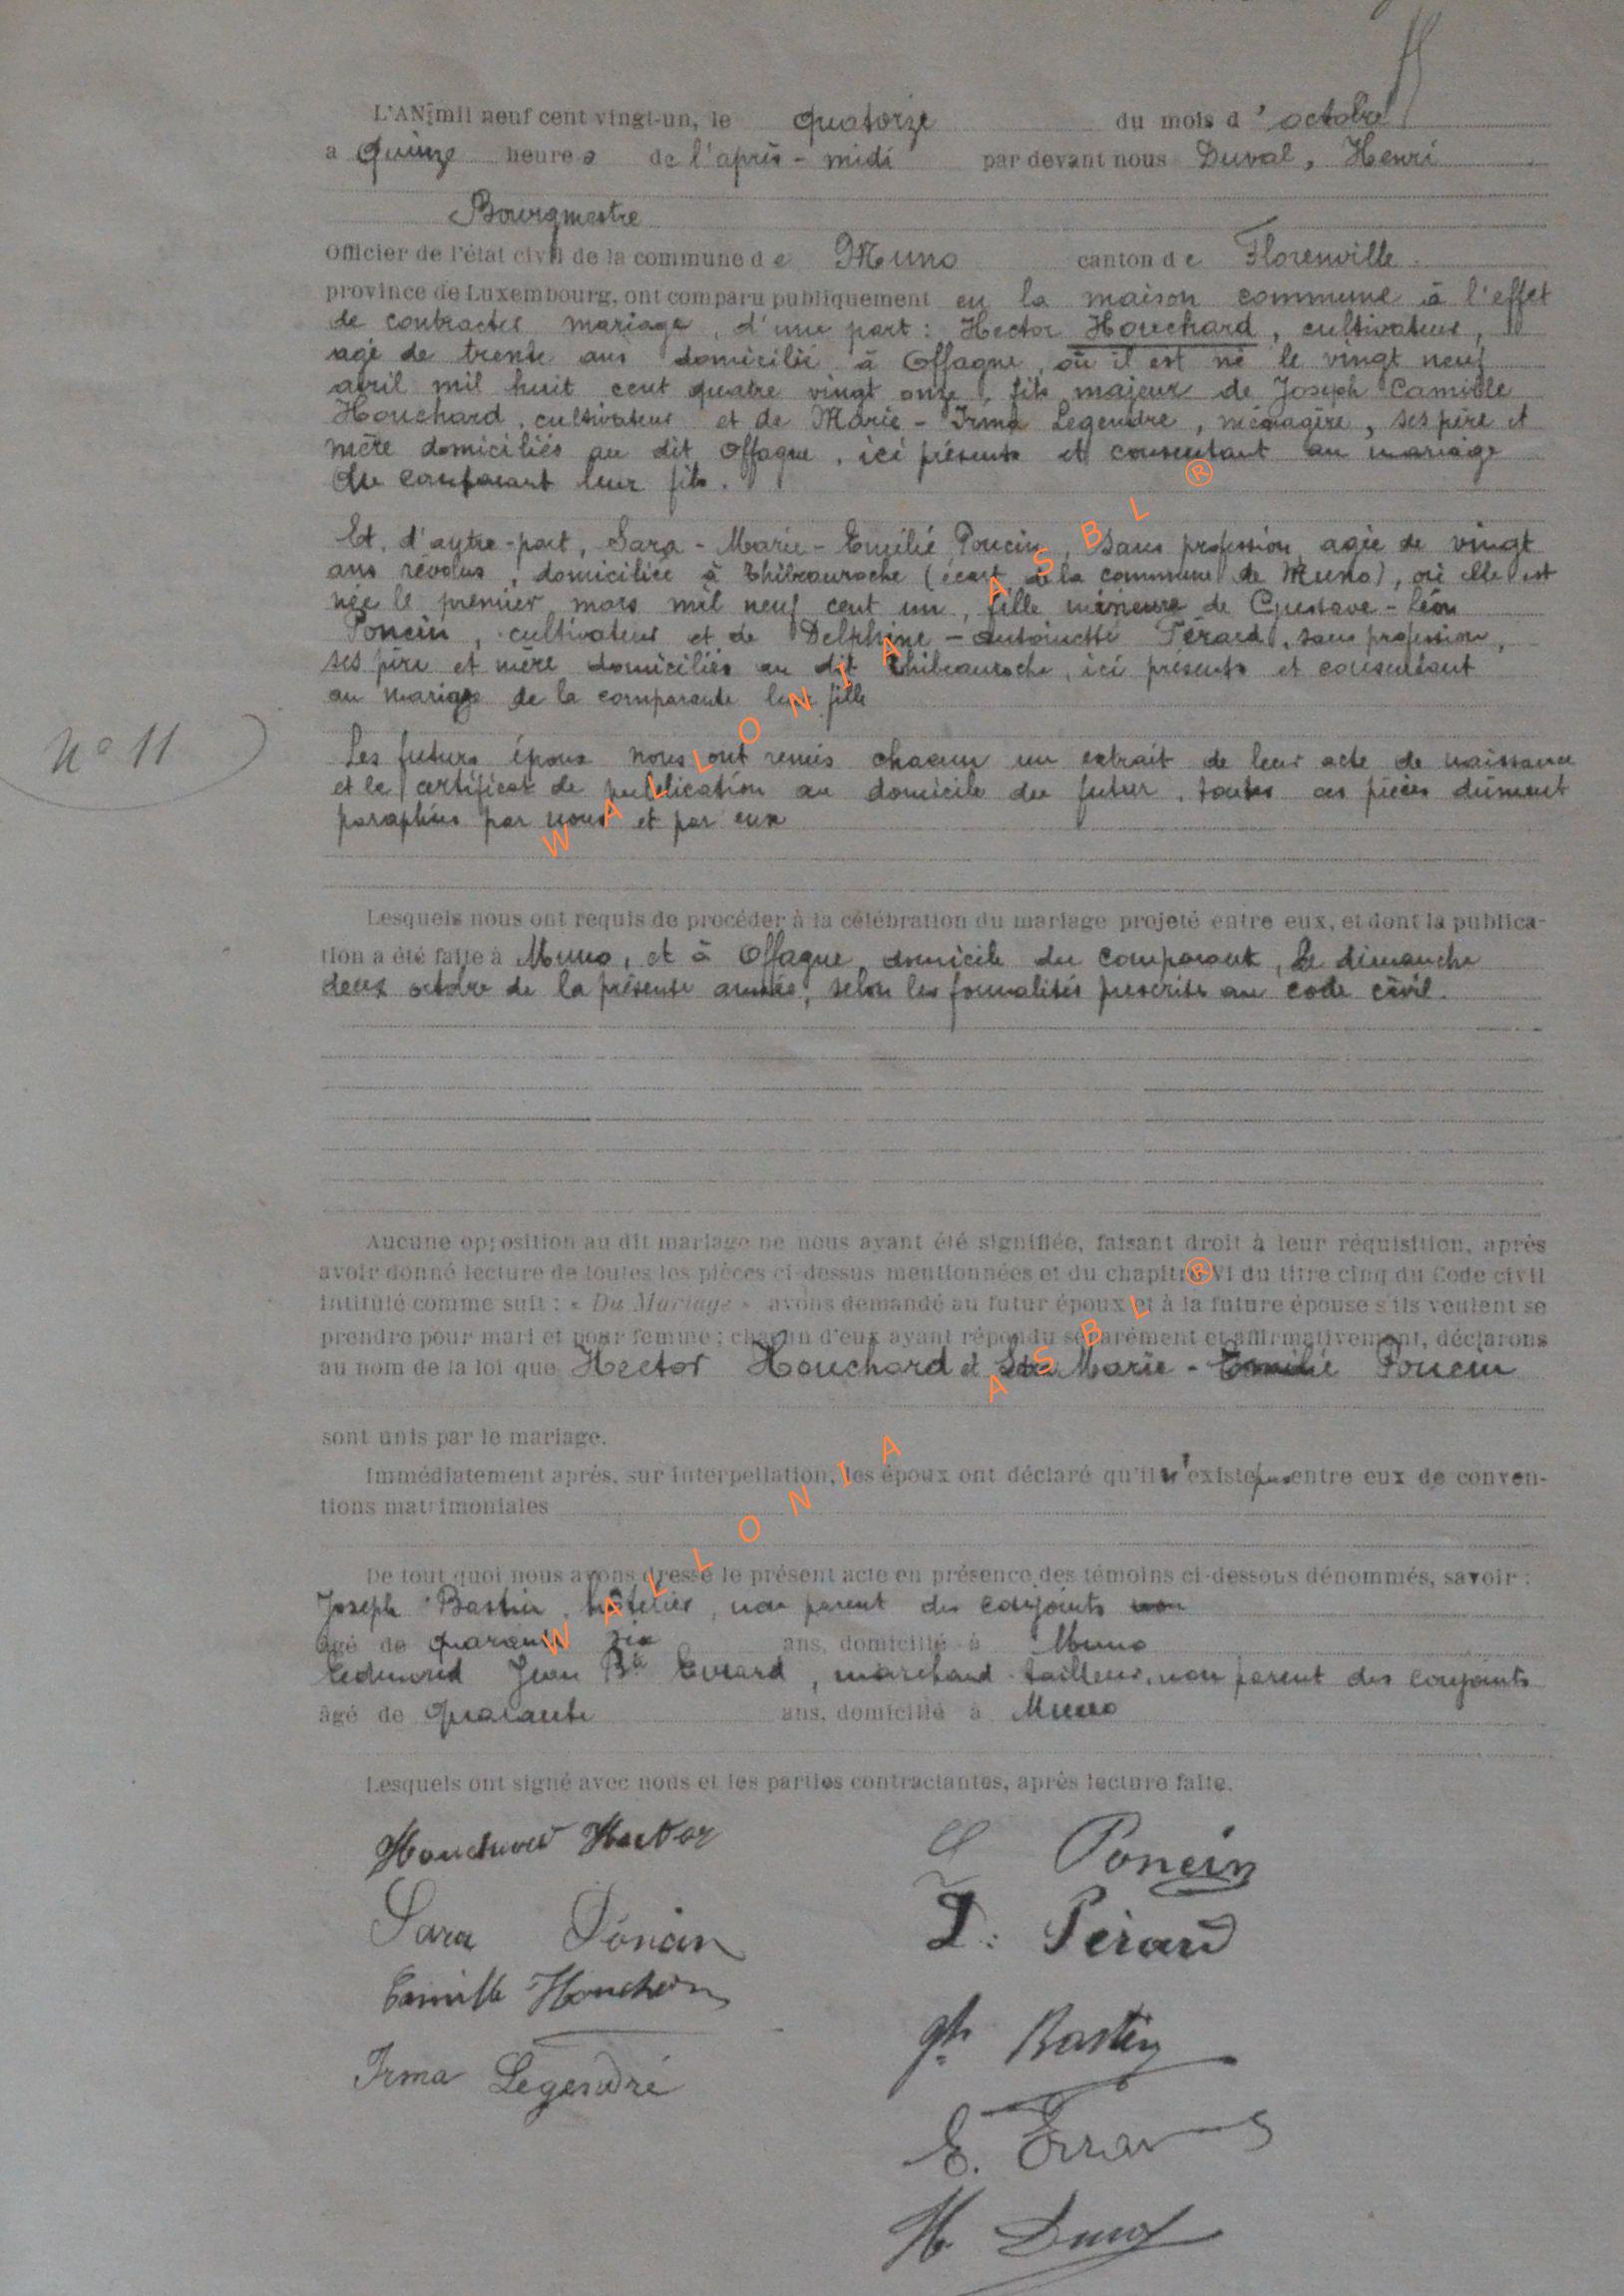 L'AN mil neuf cent vingt-un, le quatorze du mois d'octobre
a quinze heures de l'après-midi par devant nous Duval, Henri
Bourgmestre
Officier de l'état civil de la commune de Muno canton de Florenville
province de Luxembourg, ont comparu publiquement en la maison commune à l'effet
de contracter mariage, d'une part : Hector Houchard, cultivateur,
âgé de trente ans domicilié à Offagne, où il est né le vingt neuf
avril mil huit cent quatre vingt onze, fils majeur de Joseph Camille
Houchard, cultivateur et de Marie-Irma Legendre, ménagère, ses père et
mère domiciliés au dit Offagne, ici présents et consentant au mariage
du comparant leur fils.
Et, d'autre-part, Sara-Marie-Emilie Poncin, sans profession, agée de vingt
ans révolus, domiciliée à Thibauroche (écart de la commune de Muno), où elle est
née le premier mars mil neuf cent un, fille mineure de Gustave-Léon
Poncin, cultivateur et de Delphine-Antoinette Pérard, sans profession,
ses père et mère domiciliés au dit Thibauroche, ici présents et consentant
au mariage de la comparante leur fille
N° 11
Les futurs époux nous ont remis chacun un extrait de leur acte de naissance
et le certificat de publication au domicile du futur, toutes ces pièces dûment
paraphées par nous et par eux
WALLONIA ASBL ®
Lesquels nous ont requis de procéder à la célébration du mariage projeté entre eux, et dont la publica-
tion a été faite à Muno, et à Offagne domicile du comparant, le dimanche
deux octobre de la présente année, selon les formalités prescrites au code civil.
Aucune opposition au dit mariage ne nous ayant été signifiée, faisant droit à leur réquisition, après
avoir donné lecture de toutes les pièces ci-dessus mentionnées et du chapitre VI du titre cinq du Code civil
intitulé comme suit : « Du Mariage » avons demandé au futur époux et à la future épouse s'ils veulent se
prendre pour mari et pour femme ; chacun d'eux ayant répondu séparément et affirmativement, déclarons
au nom de la loi que Hector Houchard et Sara Marie-Emilie Poncin
sont unis par le mariage.
Immédiatement après, sur interpellation, les époux ont déclaré qu'il n'existe pas entre eux de conven-
tions matrimoniales
WALLONIA ASBL ®
De tout quoi nous avons dressé le présent acte en présence des témoins ci-dessous dénommés, savoir :
Joseph Bastin, hôtelier, non parent des conjoints
âgé de quarante six ans, domicilié à Muno
Edmond Jean Bte Evrard, marchand tailleur, non parent des conjoints
âgé de quarante ans, domicilié à Muno
Lesquels ont signé avec nous et les parties contractantes, après lecture faite.
Houchard Hector
Poncin
Sara Poncin
D. Pérard
Camille Houchard
Jh Bastin
Irma Legendre
E. Evrard
H. Duval